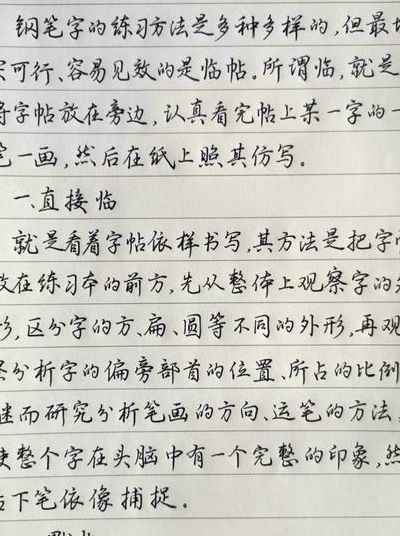 钢笔字的练习方法是多种多样的,但最
可行、容易见效的是临帖。所谓临,就是
将字帖放在旁边,认真看完帖上某一字的一
笔一画,然后在纸上照其仿写。
一、直接临
就是看着字帖依样书写,其方法是把字
放在练习本的前方,先从整体上观察字的
形,区分字的方、扁、圆等不同的外形,再观
察分析字的偏旁部首的位置、所占的比例
继而研究分析笔画的方向、运笔的方法,
使整个字在头脑中有一个完整的印象,然
后下笔依像捕捉。